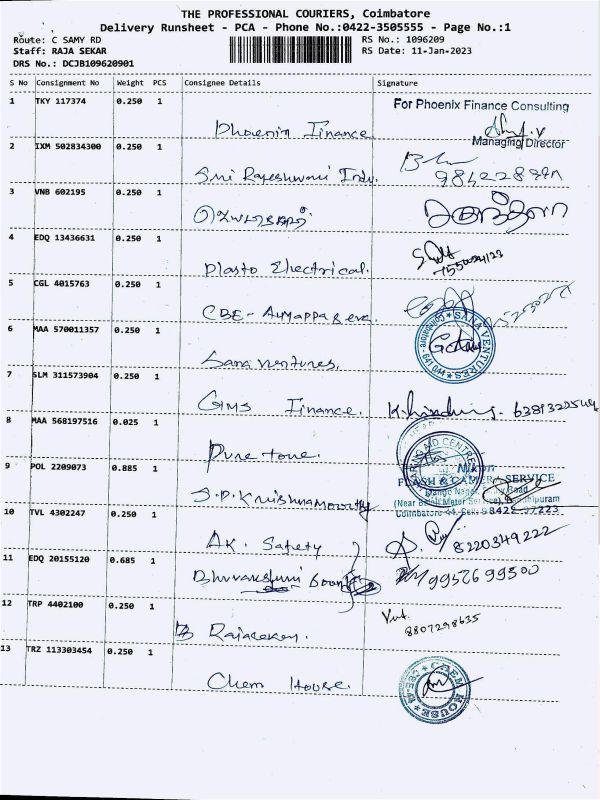 THE PROFESSIONAL COURIERS, Coimbatore
Delivery Runsheet - PCA - Phone No.:0422-3505555 - Page No.:1
Route: C SAMY RD
RS No.: 1096209
Staff: RAJA SEKAR
RS Date: 11-Jan-2023
DRS No.: DCJB109620901
S No Consignment No Weight PCS Consignee Details Signature
1 TKY 117374 0.250 1 Phoenix Finance
For Phoenix Finance Consulting
Managing Director
2 IXM 502834300 0.250 1
Sri Rajeshwari Indu.
3 VNB 602195 0.250 1
4 EDQ 13436631 0.250 1
Plasto Electrical.
5 CGL 4015763 0.250 1
CBE - Ayyappa
6 MAA 570011357 0.250 1
Sana ventures.
SANA VENTURES
Coimbatore - 641 044
7 SLM 311573904 0.250 1
GIMS Finance.
8 MAA 568197516 0.025 1
Pure tone.
HEARING AID CENTRE
9 POL 2209073 0.885 1
S.P. Krishnamoorthy
Nikon
FLASH & CAMERA SERVICE
10 TVL 4302247 0.250 1
AK. Safety
8220349222
11 EDQ 20155120 0.685 1
9952699500
12 TRP 4402100 0.250 1
Rajasekar.
8807298635
13 TRZ 113303454 0.250 1
Chem House.
CHEM HOUSE